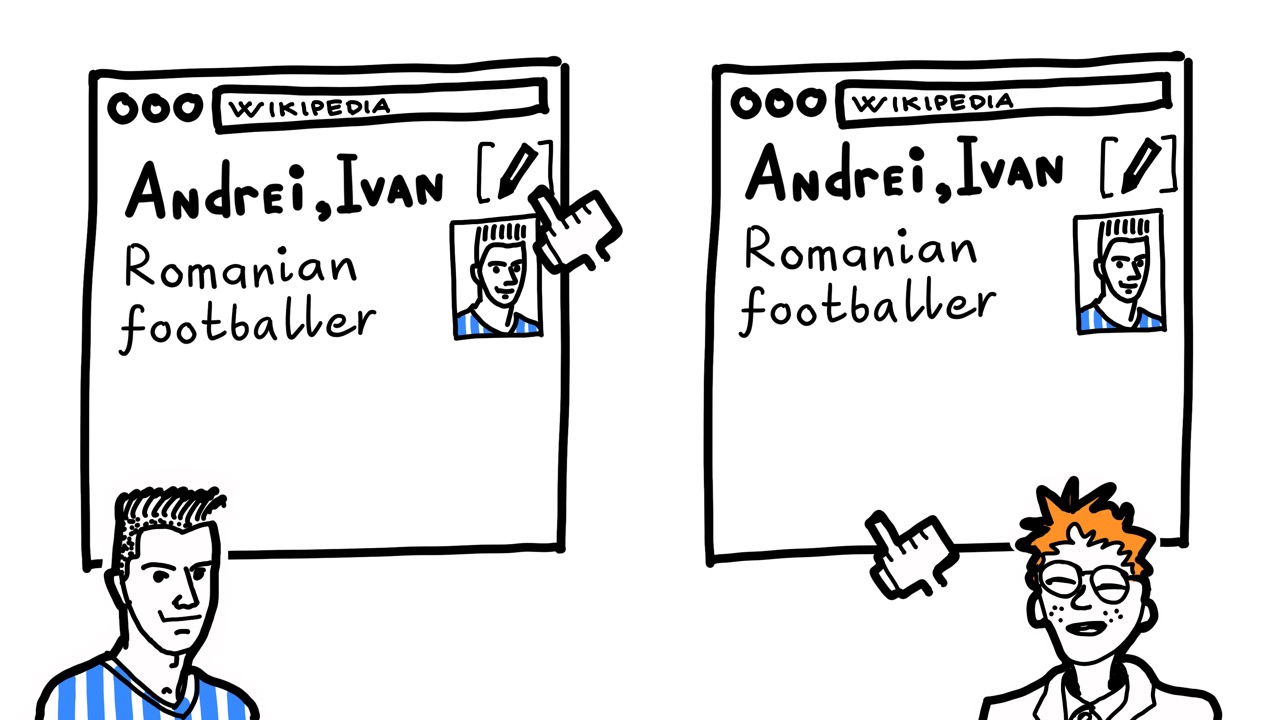 WIKIPEDIA
AndrEi,IVAN
Romanian
footballer
WIKIPEDIA
AndrEi,IVAN
Romanian
footballer